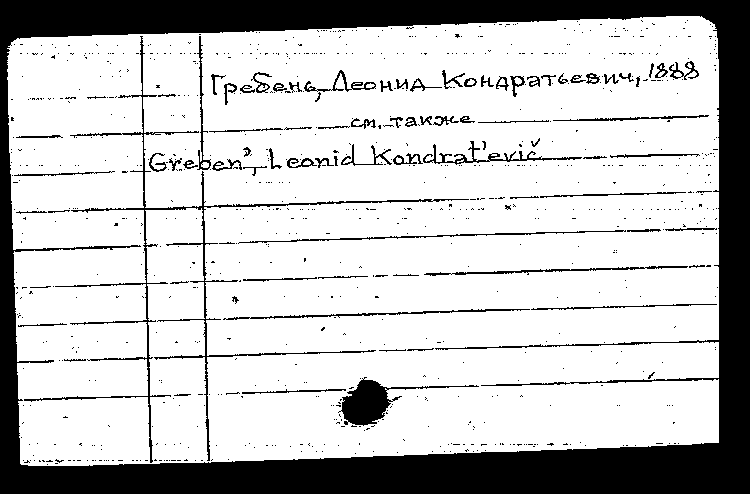 Гребень, Леонид Кондратьевич, 1888
см. также
Greben', Leonid Kondrat'evič